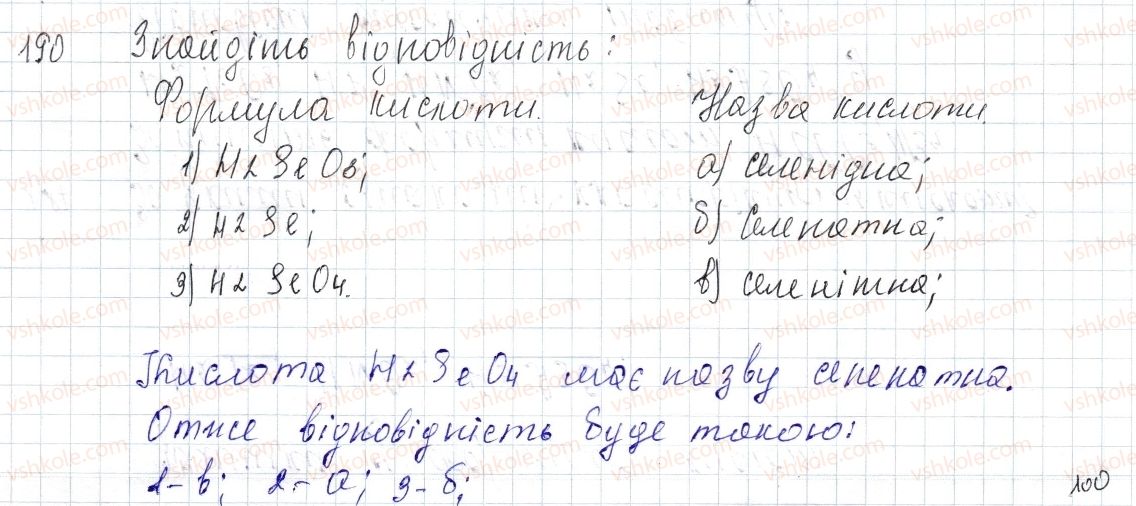 190 Знайдіть відповідність:
Формула кислоти. Назва кислоти.
1) H2SeO3; а) селенідна;
2) H2Se; б) Селенатна;
3) H2SeO4. в) селенітна;
Кислота H2SeO4 має назву селенатна.
Отже відповідність буде такою:
1-в; 2-а; 3-б;
100